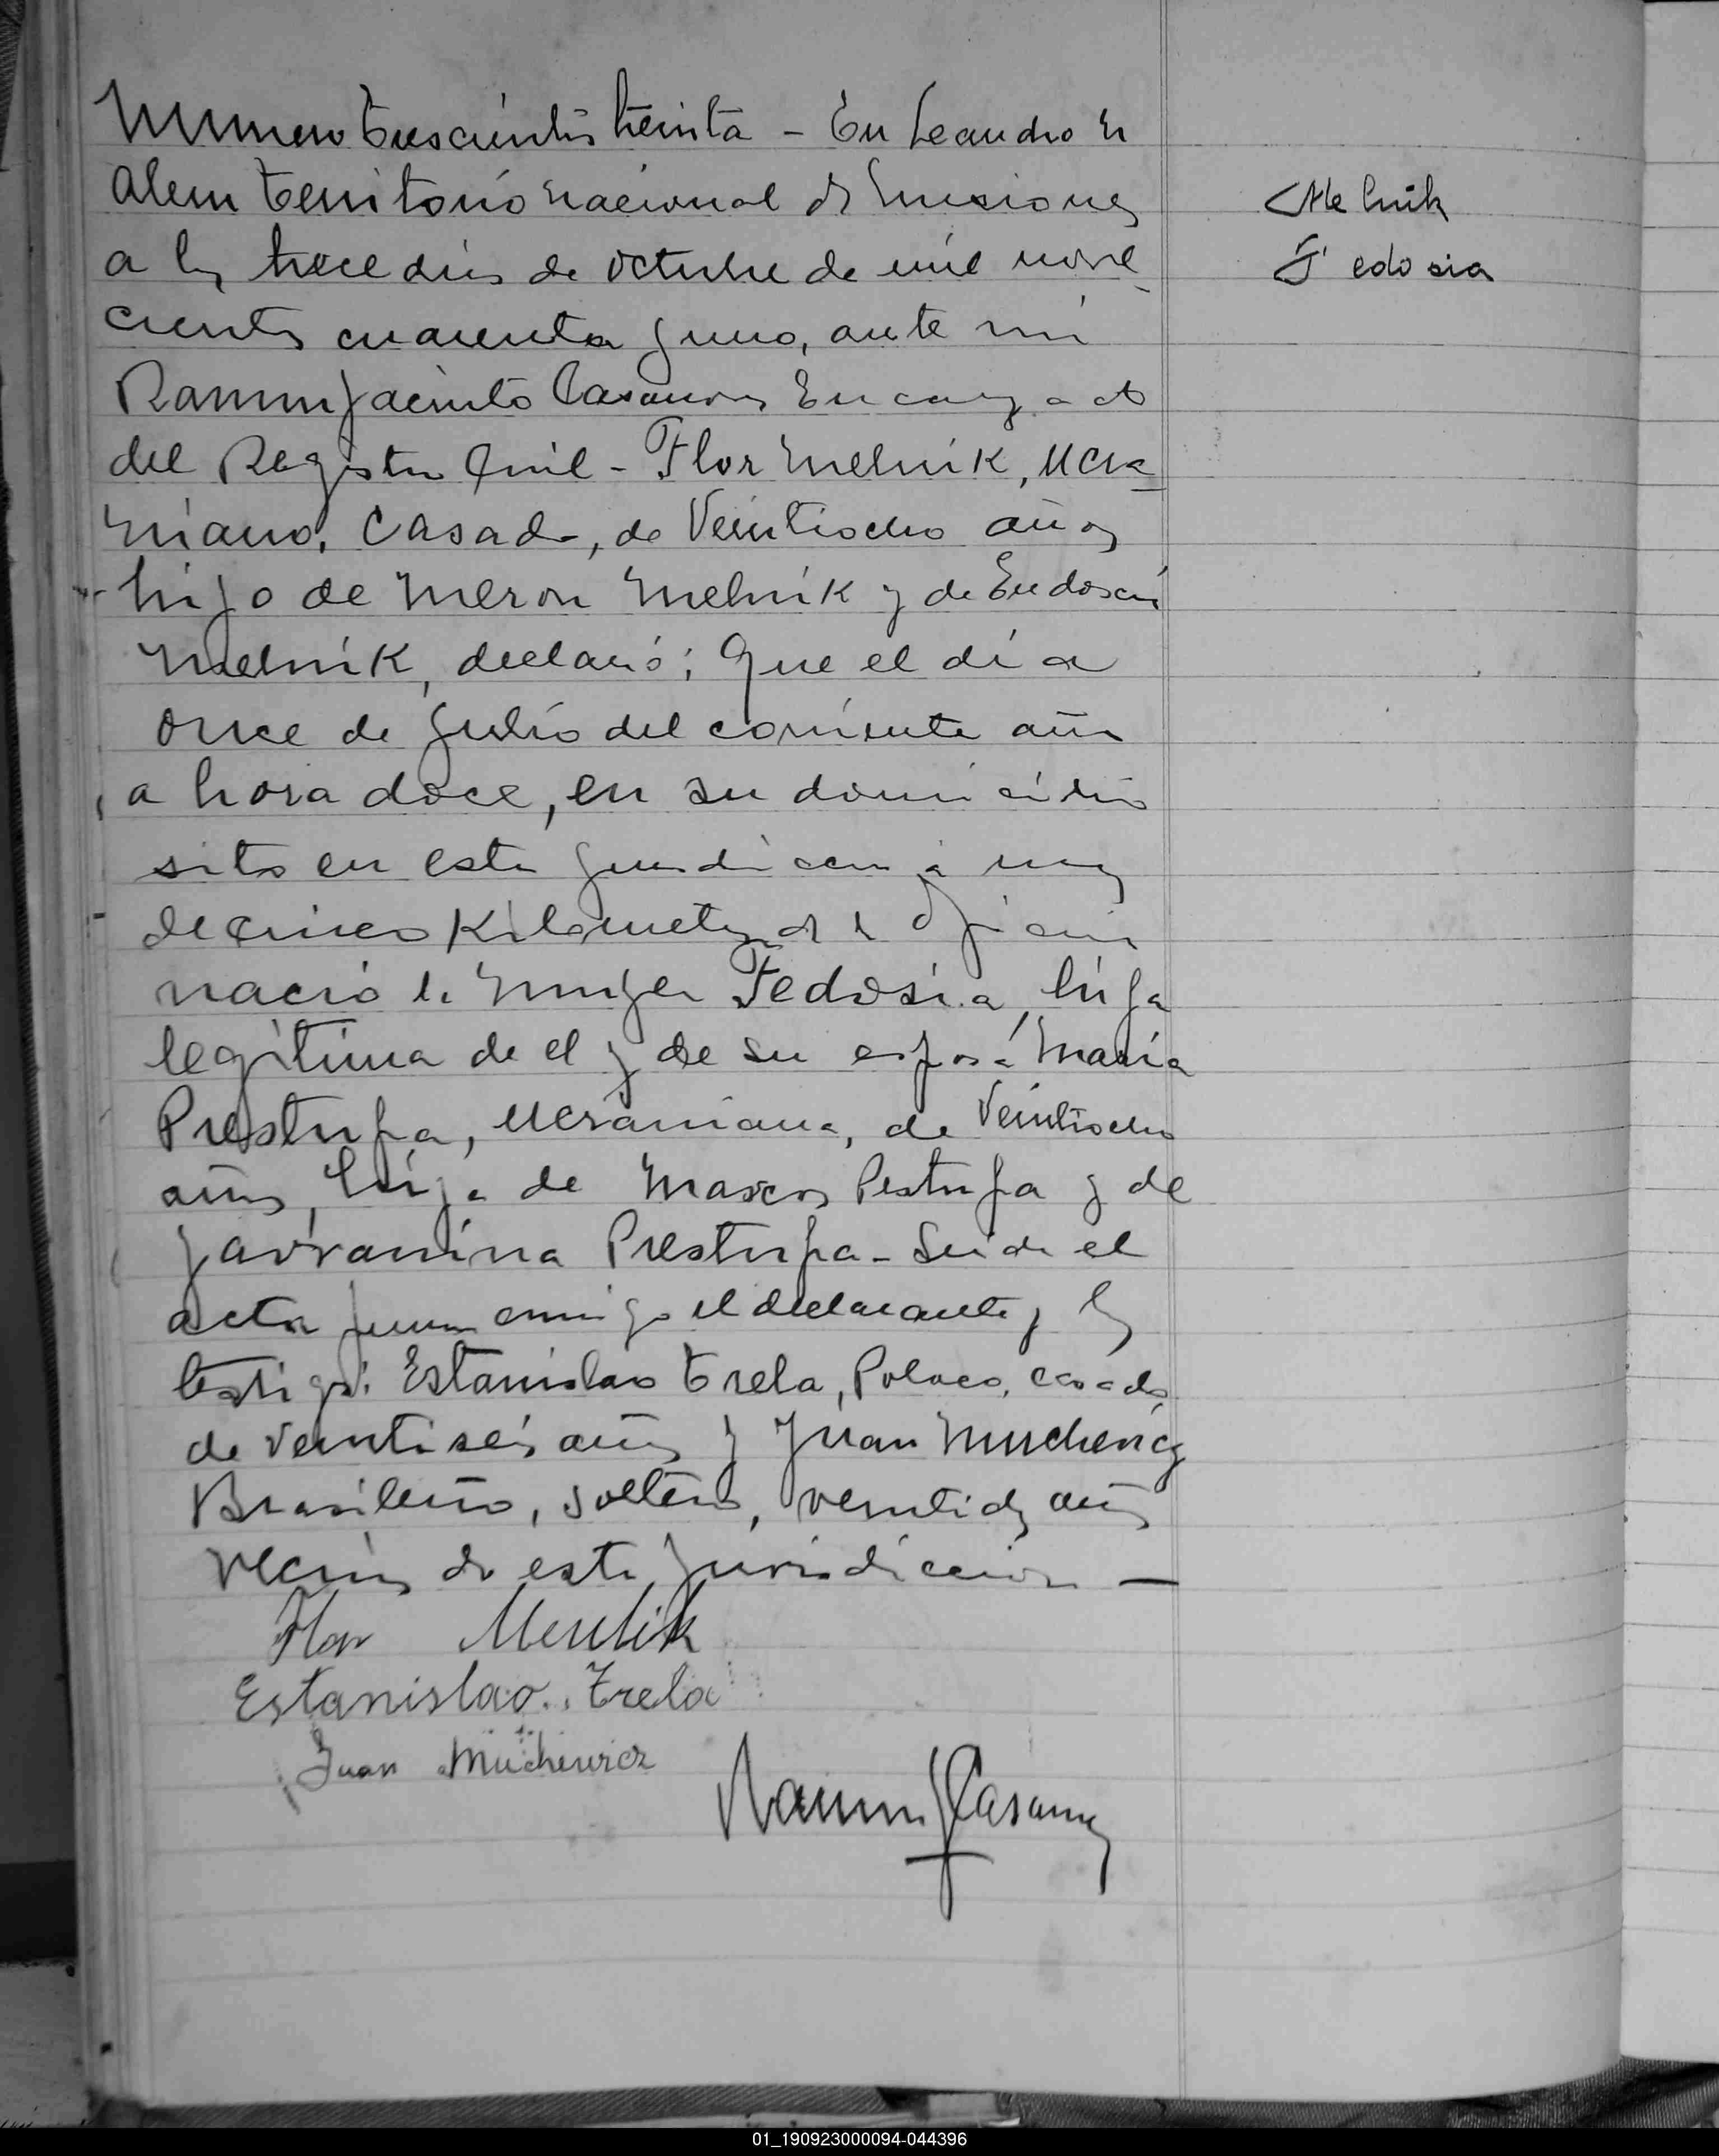 Numero trescientos treinta - En Leandro N
Alem territorio nacional de Misiones
a los trece dias de octubre de mil nove
cientos cuarenta y uno, ante mi
Ramon Jacinto Casanova Encargado
del Registro Civil - Flor Melnik, Ucra
niano, casado, de veintiocho años
hijo de Meron Melnik y de Eudoscia
Melnik, declaró; Que el dia
once de Julio del corriente año
a hora doce, en su domicilio
sito en esta jurisdiccion a mas
de cinco Kilometros de la oficina
nació la mujer Fedosia, hija
legitima de el y de su esposa Maria
Prestupa, Ucraniana, de veintiocho
años, hija de Marcos Pestupa y de
Jarranina Prestupa - Leida el
acta firman conmigo el declarante y los
testigos: Estanislao Trela, Polaco, casado,
de veintiseis años y Juan Muchewicz
Brasileño, soltero, veintidos años
vecinos de esta jurisdiccion —
Flor Menlik
Estanislao Trela
Juan Muchewicz
Ramon J Casanova
Melnik
Fedosia
01_190923000094-044396